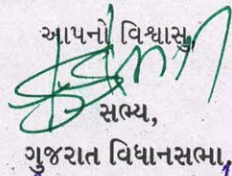 આપનો વિશ્વાસુ,
સભ્ય,
ગુજરાત વિધાનસભા,